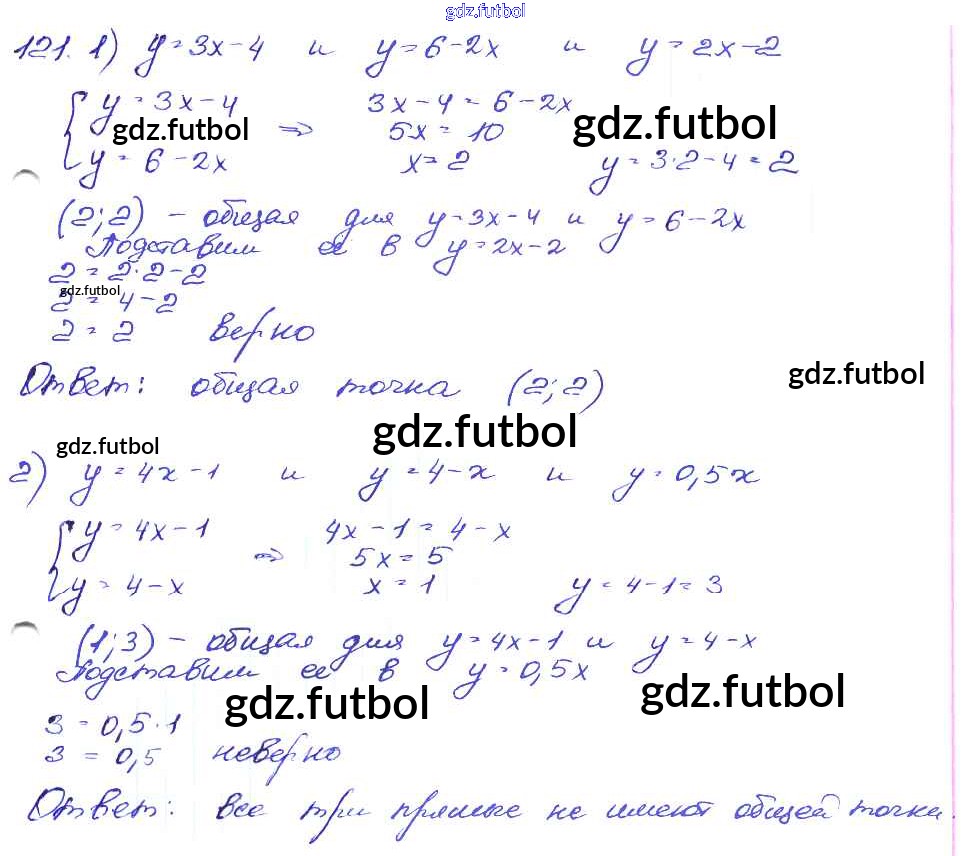 gdz.futbol
121. 1) y = 3x - 4 и y = 6 - 2x и y = 2x - 2
{ y = 3x - 4 3x - 4 = 6 - 2x gdz.futbol
gdz.futbol => 5x = 10
y = 6 - 2x x = 2 y = 3·2 - 4 = 2
(2; 2) - общая для y = 3x - 4 и y = 6 - 2x
Подставим ее в y = 2x - 2
2 = 2·2 - 2
gdz.futbol
2 = 4 - 2
2 = 2 верно
Ответ: общая точка (2; 2) gdz.futbol
gdz.futbol gdz.futbol
2) y = 4x - 1 и y = 4 - x и y = 0,5x
{ y = 4x - 1 4x - 1 = 4 - x
=> 5x = 5
y = 4 - x x = 1 y = 4 - 1 = 3
(1; 3) - общая для y = 4x - 1 и y = 4 - x
Подставим ее в y = 0,5x
gdz.futbol gdz.futbol
3 = 0,5·1
3 = 0,5 неверно
Ответ: все три прямые не имеют общей точки.